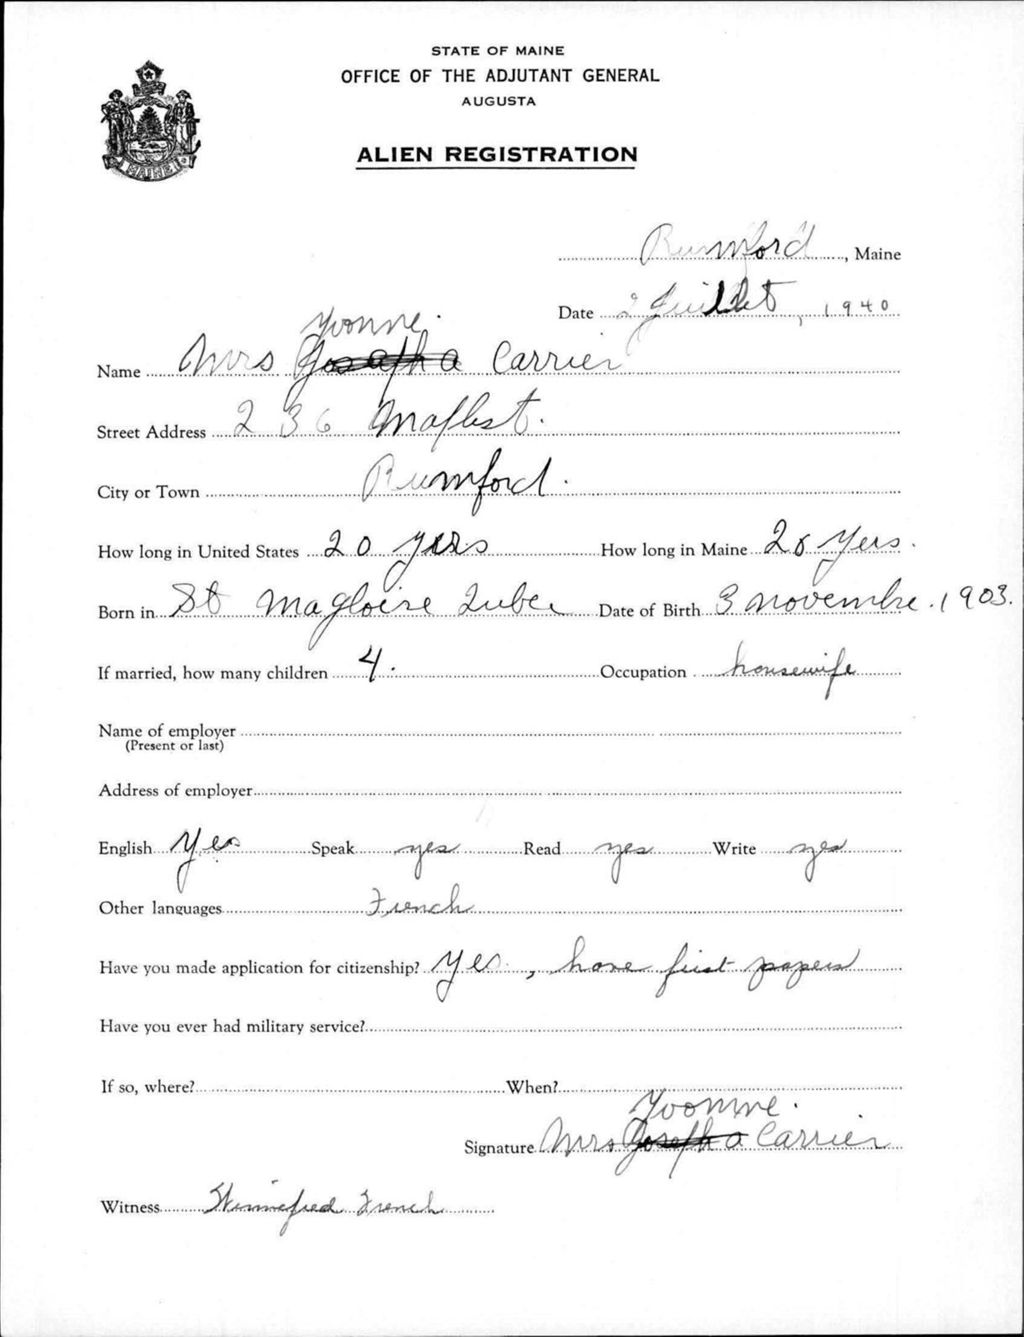 STATE OF MAINE
OFFICE OF THE ADJUTANT GENERAL
AUGUSTA
ALIEN REGISTRATION
MAINE
Rumford, Maine
Date 2 Juillet, 1940
Yvonne.
Name Mrs Joseph a Carrier
Street Address 236 st.
City or Town Rumford.
How long in United States 20 yers How long in Maine yers.
Born in St Magloire Date of Birth 3 novembre. 1903.
If married, how many children 4. Occupation housewife
Name of employer
(Present or last)
Address of employer
English Yes Speak yes Read yes Write yes
Other languages French
Have you made application for citizenship? Yes, have first papers
Have you ever had military service?
If so, where? When?
Yvonne.
Signature Mrs Joseph a Carrier
Witness Winnefred French